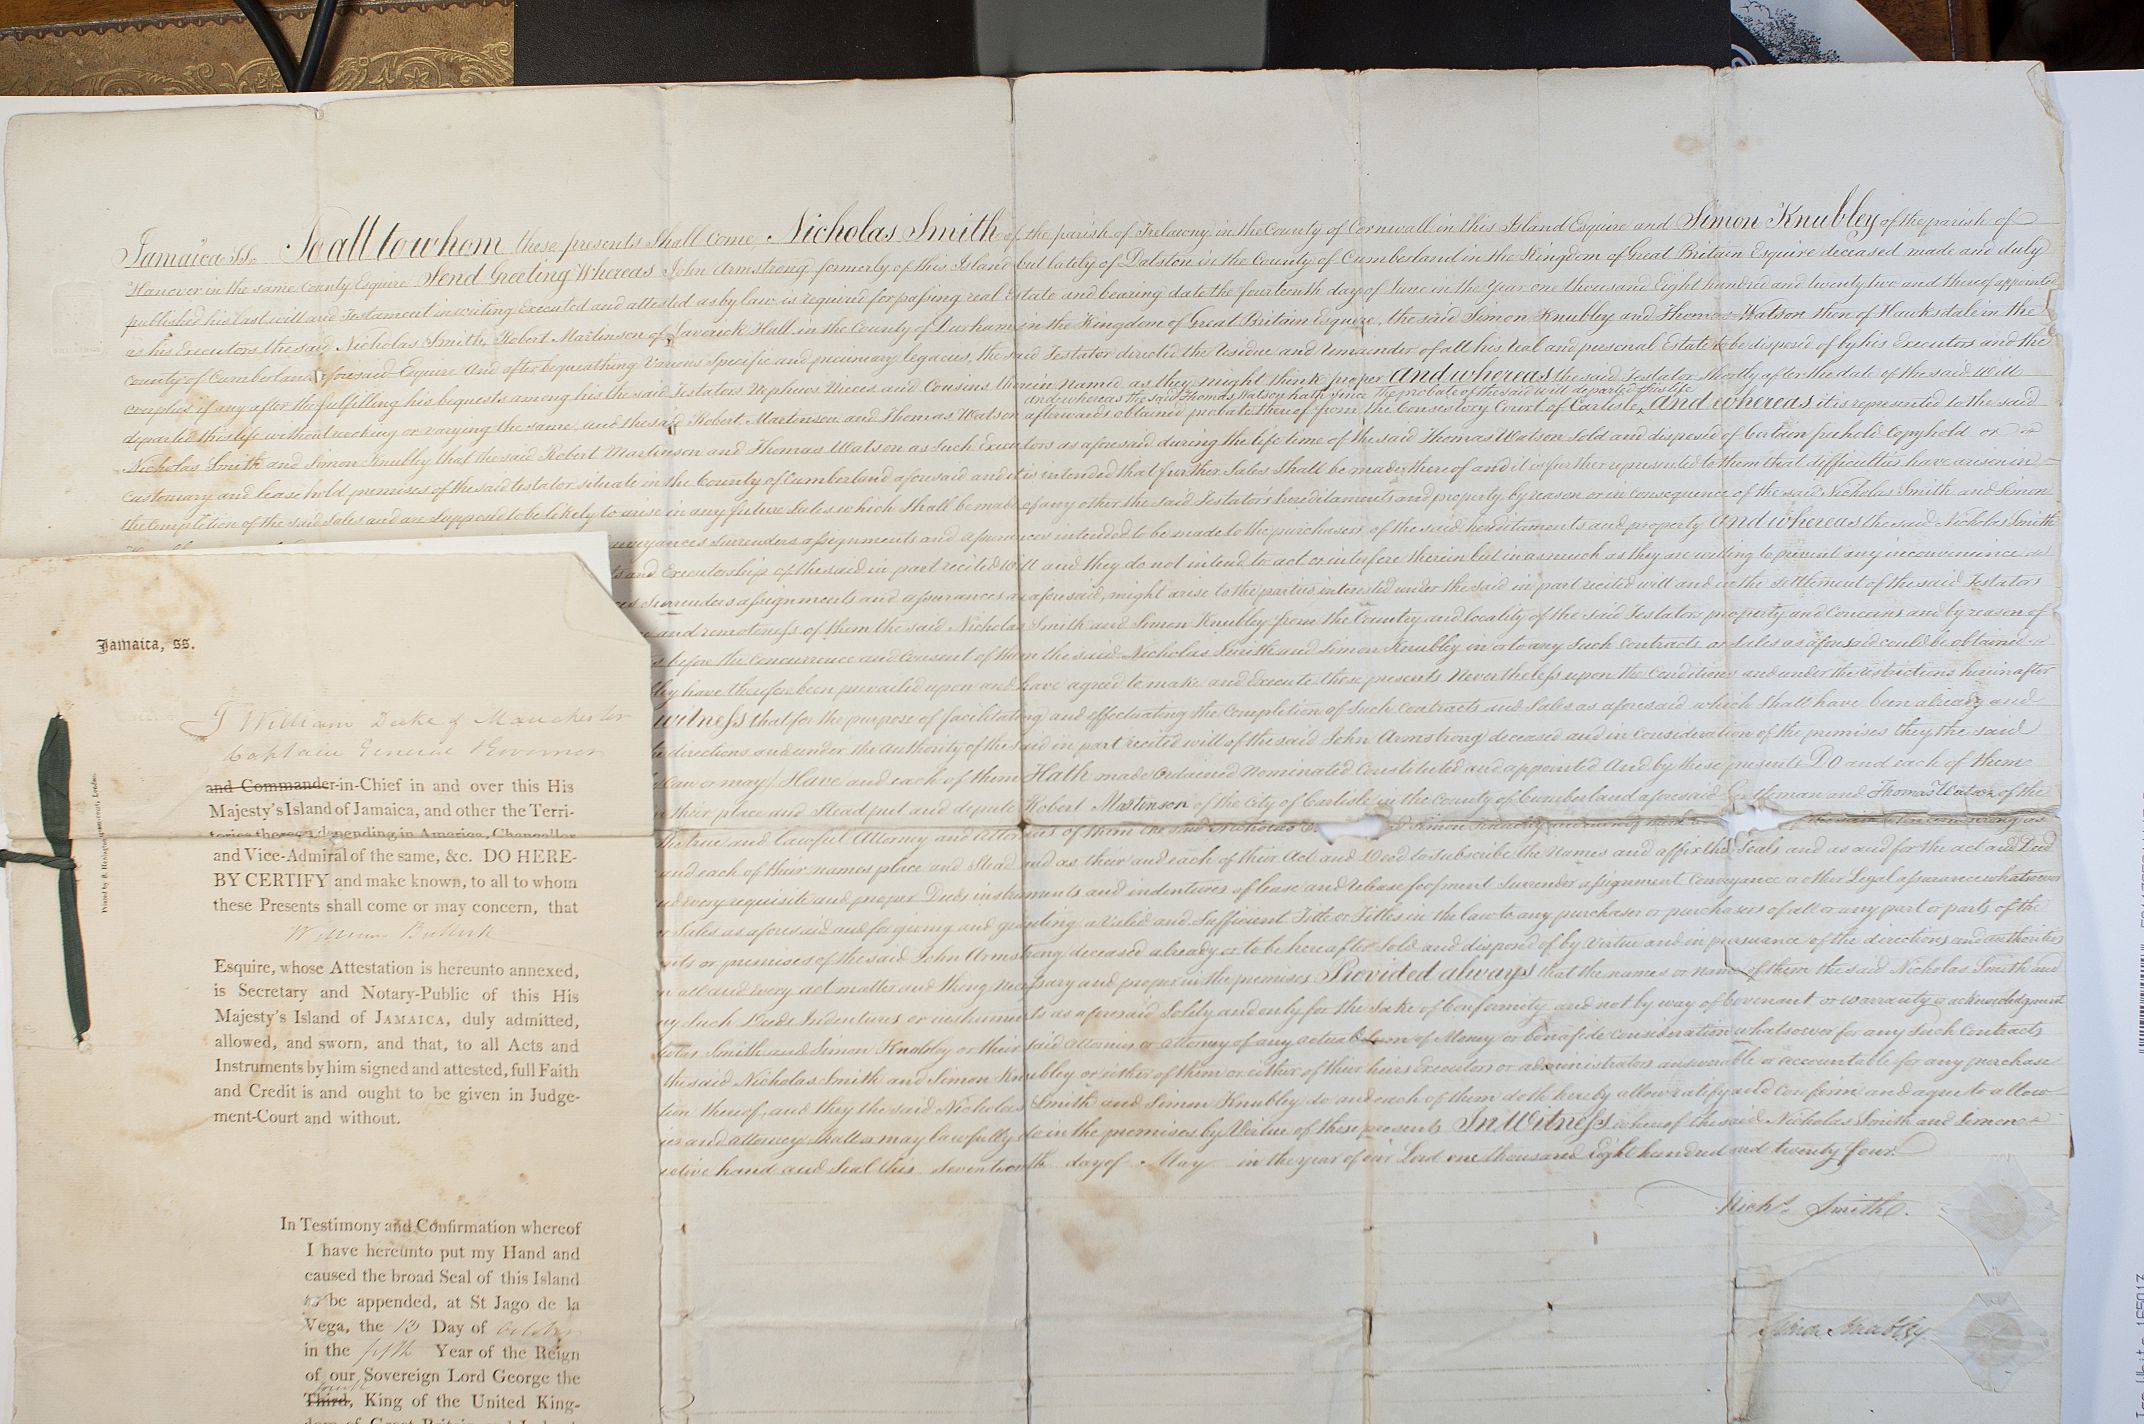 Jamaica Ss. To all to whom these presents Shall Come Nicholas Smith of the parish of Trelawny in the County of Cornwall in this Island Esquire and Simon Knubley of the parish of
Hanover in the same County Esquire Send Greeting Whereas John Armstrong formerly of this Island but lately of Dalston in the County of Cumberland in the Kingdom of Great Britain Esquire deceased made and duly
published his last will and Testament in writing Executed and attested as by law is required for passing real Estate and bearing date the fourteenth day of June in the Year one thousand Eight hundred and twenty two and thereof appointed
as his Executors the said Nicholas Smith, Robert Martinson of Laverick Hall in the County of Durham in the Kingdom of Great Britain Esquire, the said Simon Knubley and Thomas Watson then of Hawksdale in the
County of Cumberland aforesaid Esquire And after bequeathing Various Specific and pecuniary legacies, the said Testator directed the Residue and Remainder of all his real and personal Estate to be disposed of by his Executors and the
overplus if any after the fulfilling his bequests among his the said Testators Nephews Nieces and Cousins therein named as they might think proper And whereas the said Testator Shortly after the date of the said Will
and whereas the said Thomas Watson hath since the probate of the said will departed this life
departed this life without revoking or varying the same and the said Robert Martinson and Thomas Watson afterwards obtained probate thereof from the Consistory Court of Carlisle, And whereas it is represented to the said
Nicholas Smith and Simon Knubley that the said Robert Martinson and Thomas Watson as Such Executors as aforesaid during the life time of the said Thomas Watson Sold and disposed of Certain freehold Copyhold or
Customary and leasehold premises of the said testator situate in the County of Cumberland aforesaid and it is intended that further Sales Shall be made thereof and it is further represented to them that difficulties have arisen in
the Completion of the said Sales and are Supposed to be likely to arise in any future Sales which Shall be made of any other the said Testator's hereditaments and property by reason or in consequence of the said Nicholas Smith and Simon
Conveyances Surrenders assignments and assurances intended to be made to the purchasers of the said hereditaments and property And whereas the said Nicholas Smith
and Executorship of the said in part recited Will and they do not intend to act or interfere therein but in as much as they are willing to prevent any inconvenience
Surrenders assignments and assurances as aforesaid, might arise to the parties interested under the said in part recited will and in the settlement of the said Testators
and remoteness of them the said Nicholas Smith and Simon Knubley from the Country and locality of the said Testators property and Concerns and by reason of
before the Concurrence and Consent of them the said Nicholas Smith and Simon Knubley in or to any Such Contracts or Sales as aforesaid could be obtained
have therefore been prevailed upon and have agreed to make and Execute these presents Nevertheless upon the Conditions and under the restrictions herein after
witness that for the purpose of facilitating and effectuating the Completion of Such Contracts and Sales as aforesaid which Shall have been already and
directions and under the Authority of the said in part recited will of the said John Armstrong deceased and in Consideration of the premises they the said
Have and each of them Hath made Ordained Nominated Constituted and appointed And by these presents Do and each of them
their place and Stead put and depute Robert Martinson of the City of Carlisle in the County of Cumberland aforesaid Gentleman and Thomas Watson of the
the true and lawful Attorney and Attornies of them the said Nicholas
and each of their names place and Stead and as their and each of their Act and Deed to Subscribe the Names and affix the Seals and as and for the act and Deed
every requisite and proper Deeds instruments and indentures of lease and release feofment Surrender assignment Conveyance or other Legal assurance whatsoever
Sales as aforesaid and for giving and granting a Valid and Sufficient Title or Titles in the law to any purchaser or purchasers of all or any part or parts of the
or premises of the said John Armstrong deceased already or to be hereafter Sold and disposed of by Virtue and in pursuance of the directions and authorities
all and every act matter and thing necessary and proper in the premises Provided always that the names or name of them the said Nicholas Smith and
Such Deeds Indentures or instruments as aforesaid Solely and only for the Sake of Conformity and not by way of Covenant or warranty or acknowledgment
Smith and Simon Knubley or their said attornies or attorney of any actual Sum of Money or bonafide Consideration whatsoever for any Such Contracts
the said Nicholas Smith and Simon Knubley or either of them or either of their heirs Executors or administrators answerable or accountable for any purchase
thereof, and they the said Nicholas Smith and Simon Knubley do and each of them doth hereby allow ratify and Confirm and agree to allow
and attorney Shall or may lawfully do in the premises by Virtue of these presents In Witness whereof the said Nicholas Smith and Simon
hand and Seal this Seventeenth day of May in the year of our Lord one thousand Eight hundred and twenty four.
Nichs. Smith.
Simon Knubley
Jamaica, ss.
I William Duke of Manchester
Captain General & Governor
and Commander-in-Chief in and over this His
Majesty's Island of Jamaica, and other the Terri-
tories thereon depending in America, Chancellor
and Vice-Admiral of the same, &c. DO HERE-
BY CERTIFY and make known, to all to whom
these Presents shall come or may concern, that
William Bullock
Esquire, whose Attestation is hereunto annexed,
is Secretary and Notary-Public of this His
Majesty's Island of JAMAICA, duly admitted,
allowed, and sworn, and that, to all Acts and
Instruments by him signed and attested, full Faith
and Credit is and ought to be given in Judge-
ment-Court and without.
In Testimony and Confirmation whereof
I have hereunto put my Hand and
caused the broad Seal of this Island
to be appended, at St Jago de la
Vega, the 13 Day of October
in the fifth Year of the Reign
of our Sovereign Lord George the
fourth
Third, King of the United King-
dom of Great Britain and Ireland